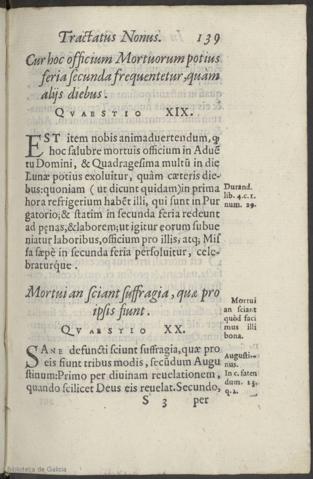 Tractatus Nonus. 139
Cur hoc officium Mortuorum potius
feria secunda frequentetur, quàm
alijs diebus.
QVAESTIO XIX.
EST item nobis animaduertendum, ꝙ
hoc salubre mortuis officium in Aduẽ
tu Domini, & Quadragesima multũ in die
Lunæ potius exoluitur, quàm cæteris die-
bus: quoniam (ut dicunt quidam) in prima
hora refrigerium habẽt illi, qui sunt in Pur
gatorio; & statim in secunda feria redeunt
ad pęnas; & laborem; ut igitur eorum subue
niatur laboribus, officium pro illis, atq; Mis
sa sæpè in secunda feria persoluitur, cele-
braturque.
Durand.
lib. 4. c. 1.
num. 29.
Mortui an sciant suffragia, quæ pro
ipsis fiunt.
QVAESTIO XX.
SANE defuncti sciunt suffragia, quæ pro
eis fiunt tribus modis, secũdum Augu
stinum: Primo per diuinam reuelationem,
quando scilicet Deus eis reuelat. Secundo,
Mortui
an sciant
quòd faci
mus illi
bona.
Augusti-
nus.
In c. faten
dum. 13.
q. 2.
S 3 per
Biblioteca de Galicia